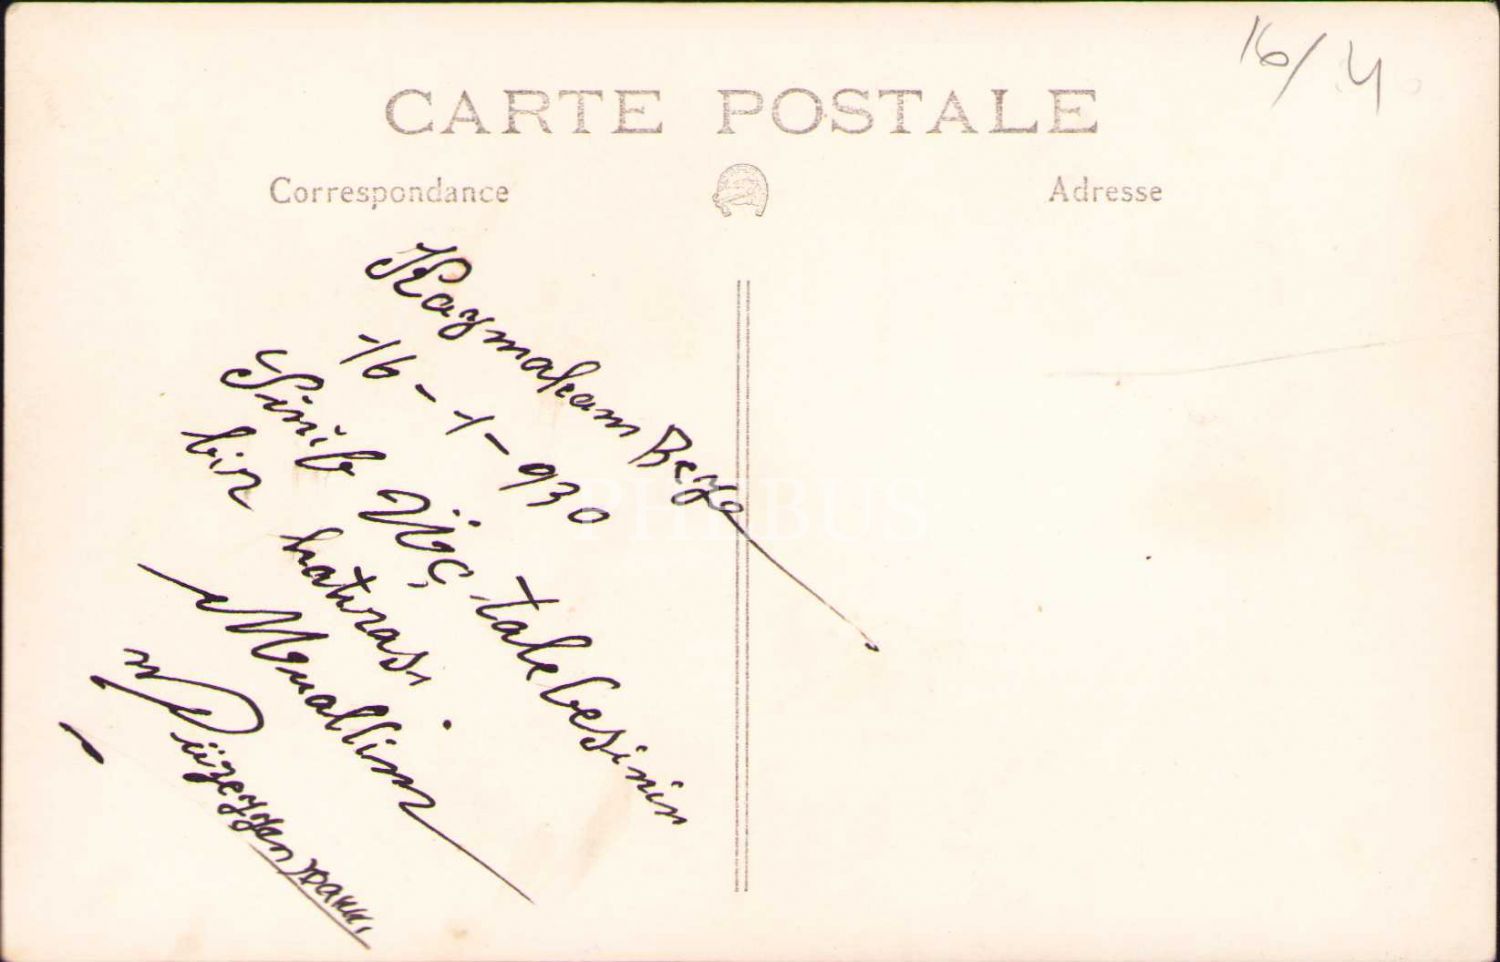 16/4
CARTE POSTALE
Correspondance
Adresse
Kaymakam Beye
16-1-930
Sinif Üç talebesinin
bir hatırası
Muallim
PHEBUS